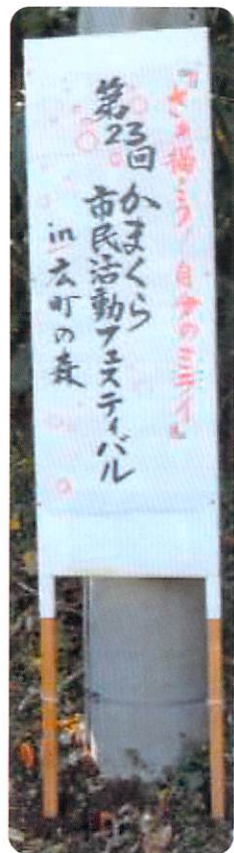 『さあ描こう!自分のミライ』
第23回かまくら
市民活動フェスティバル
in 広町の森